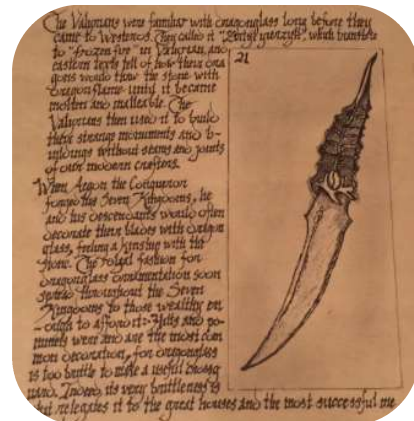 The Valyrians were familiar with dragonglass long before they
came to Westeros. They called it "Zīrtys Perzys", which translates
to "frozen fire" in Valyrian, and
eastern texts tell of how their dra
gons would thaw the stone with
dragonflame until it became
molten and malleable. The
Valyrians then used it to build
their strange monuments and b-
uildings without seams and joints
of our modern
When Aegon the Conqueror
forged his Seven Kingdoms, he
and his descendants would often
decorate their blades with dragon
glass, feeling a kinship with the
stone. The royal fashion for
dragonglass ornamentation soon
spread throughout the Seven
Kingdoms to those wealthy en
-ough to afford it. Hilts and po-
mmels were and are the most com
mon decoration, for dragonglass
is too brittle to make a useful cross
its very brittleness is
relegates it to the great houses and the most successful me
21